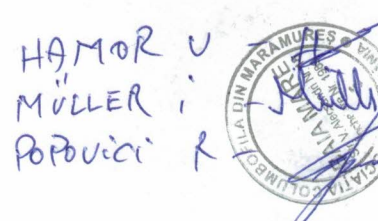 HAMOR V -
MÜLLER i -
POPOVICI R -
COLUMBOFILA DIN MARAMUREȘ
BAIA MARE